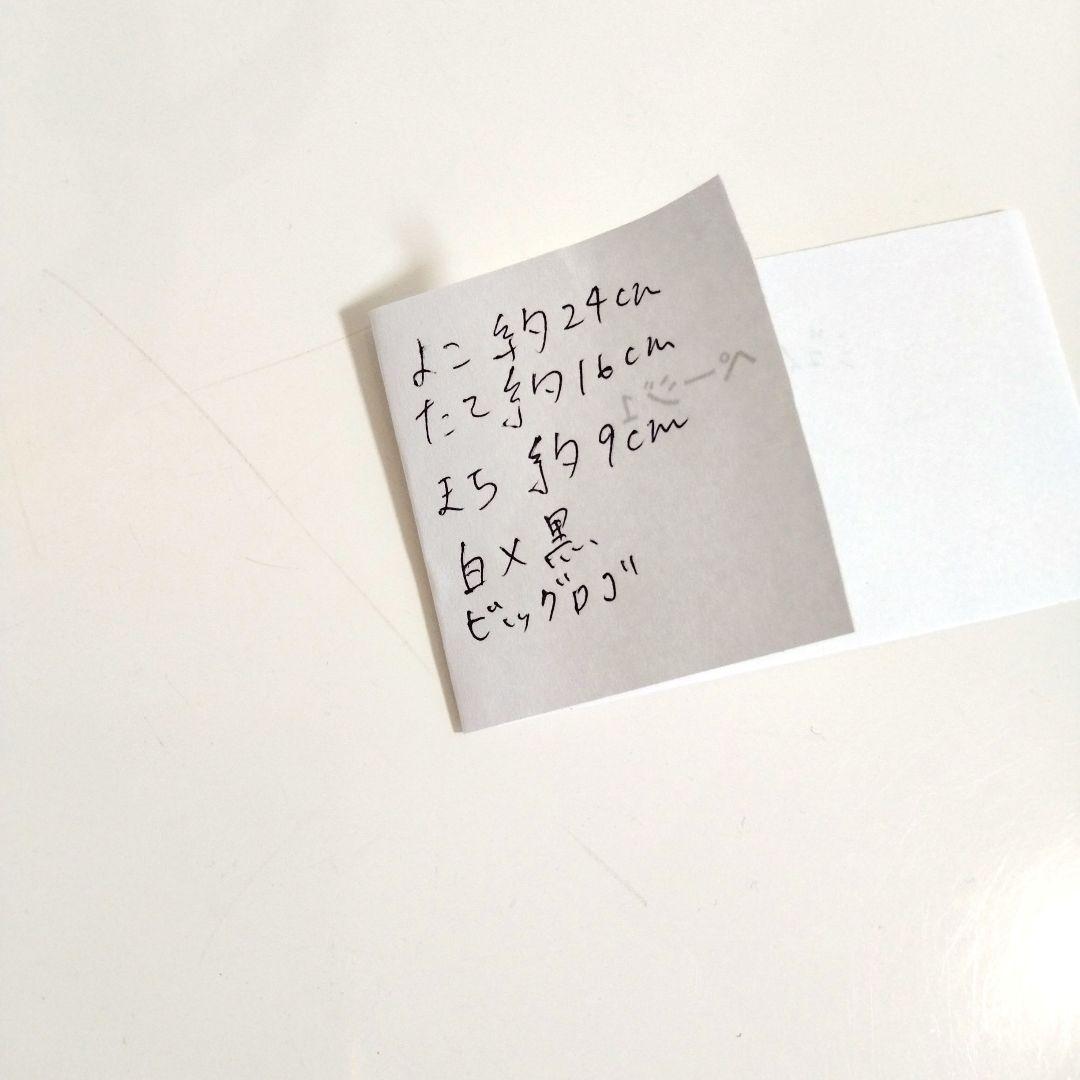 よこ 約24cm
たて 約16cm
まち 約9cm
白×黒
ビッグロゴ